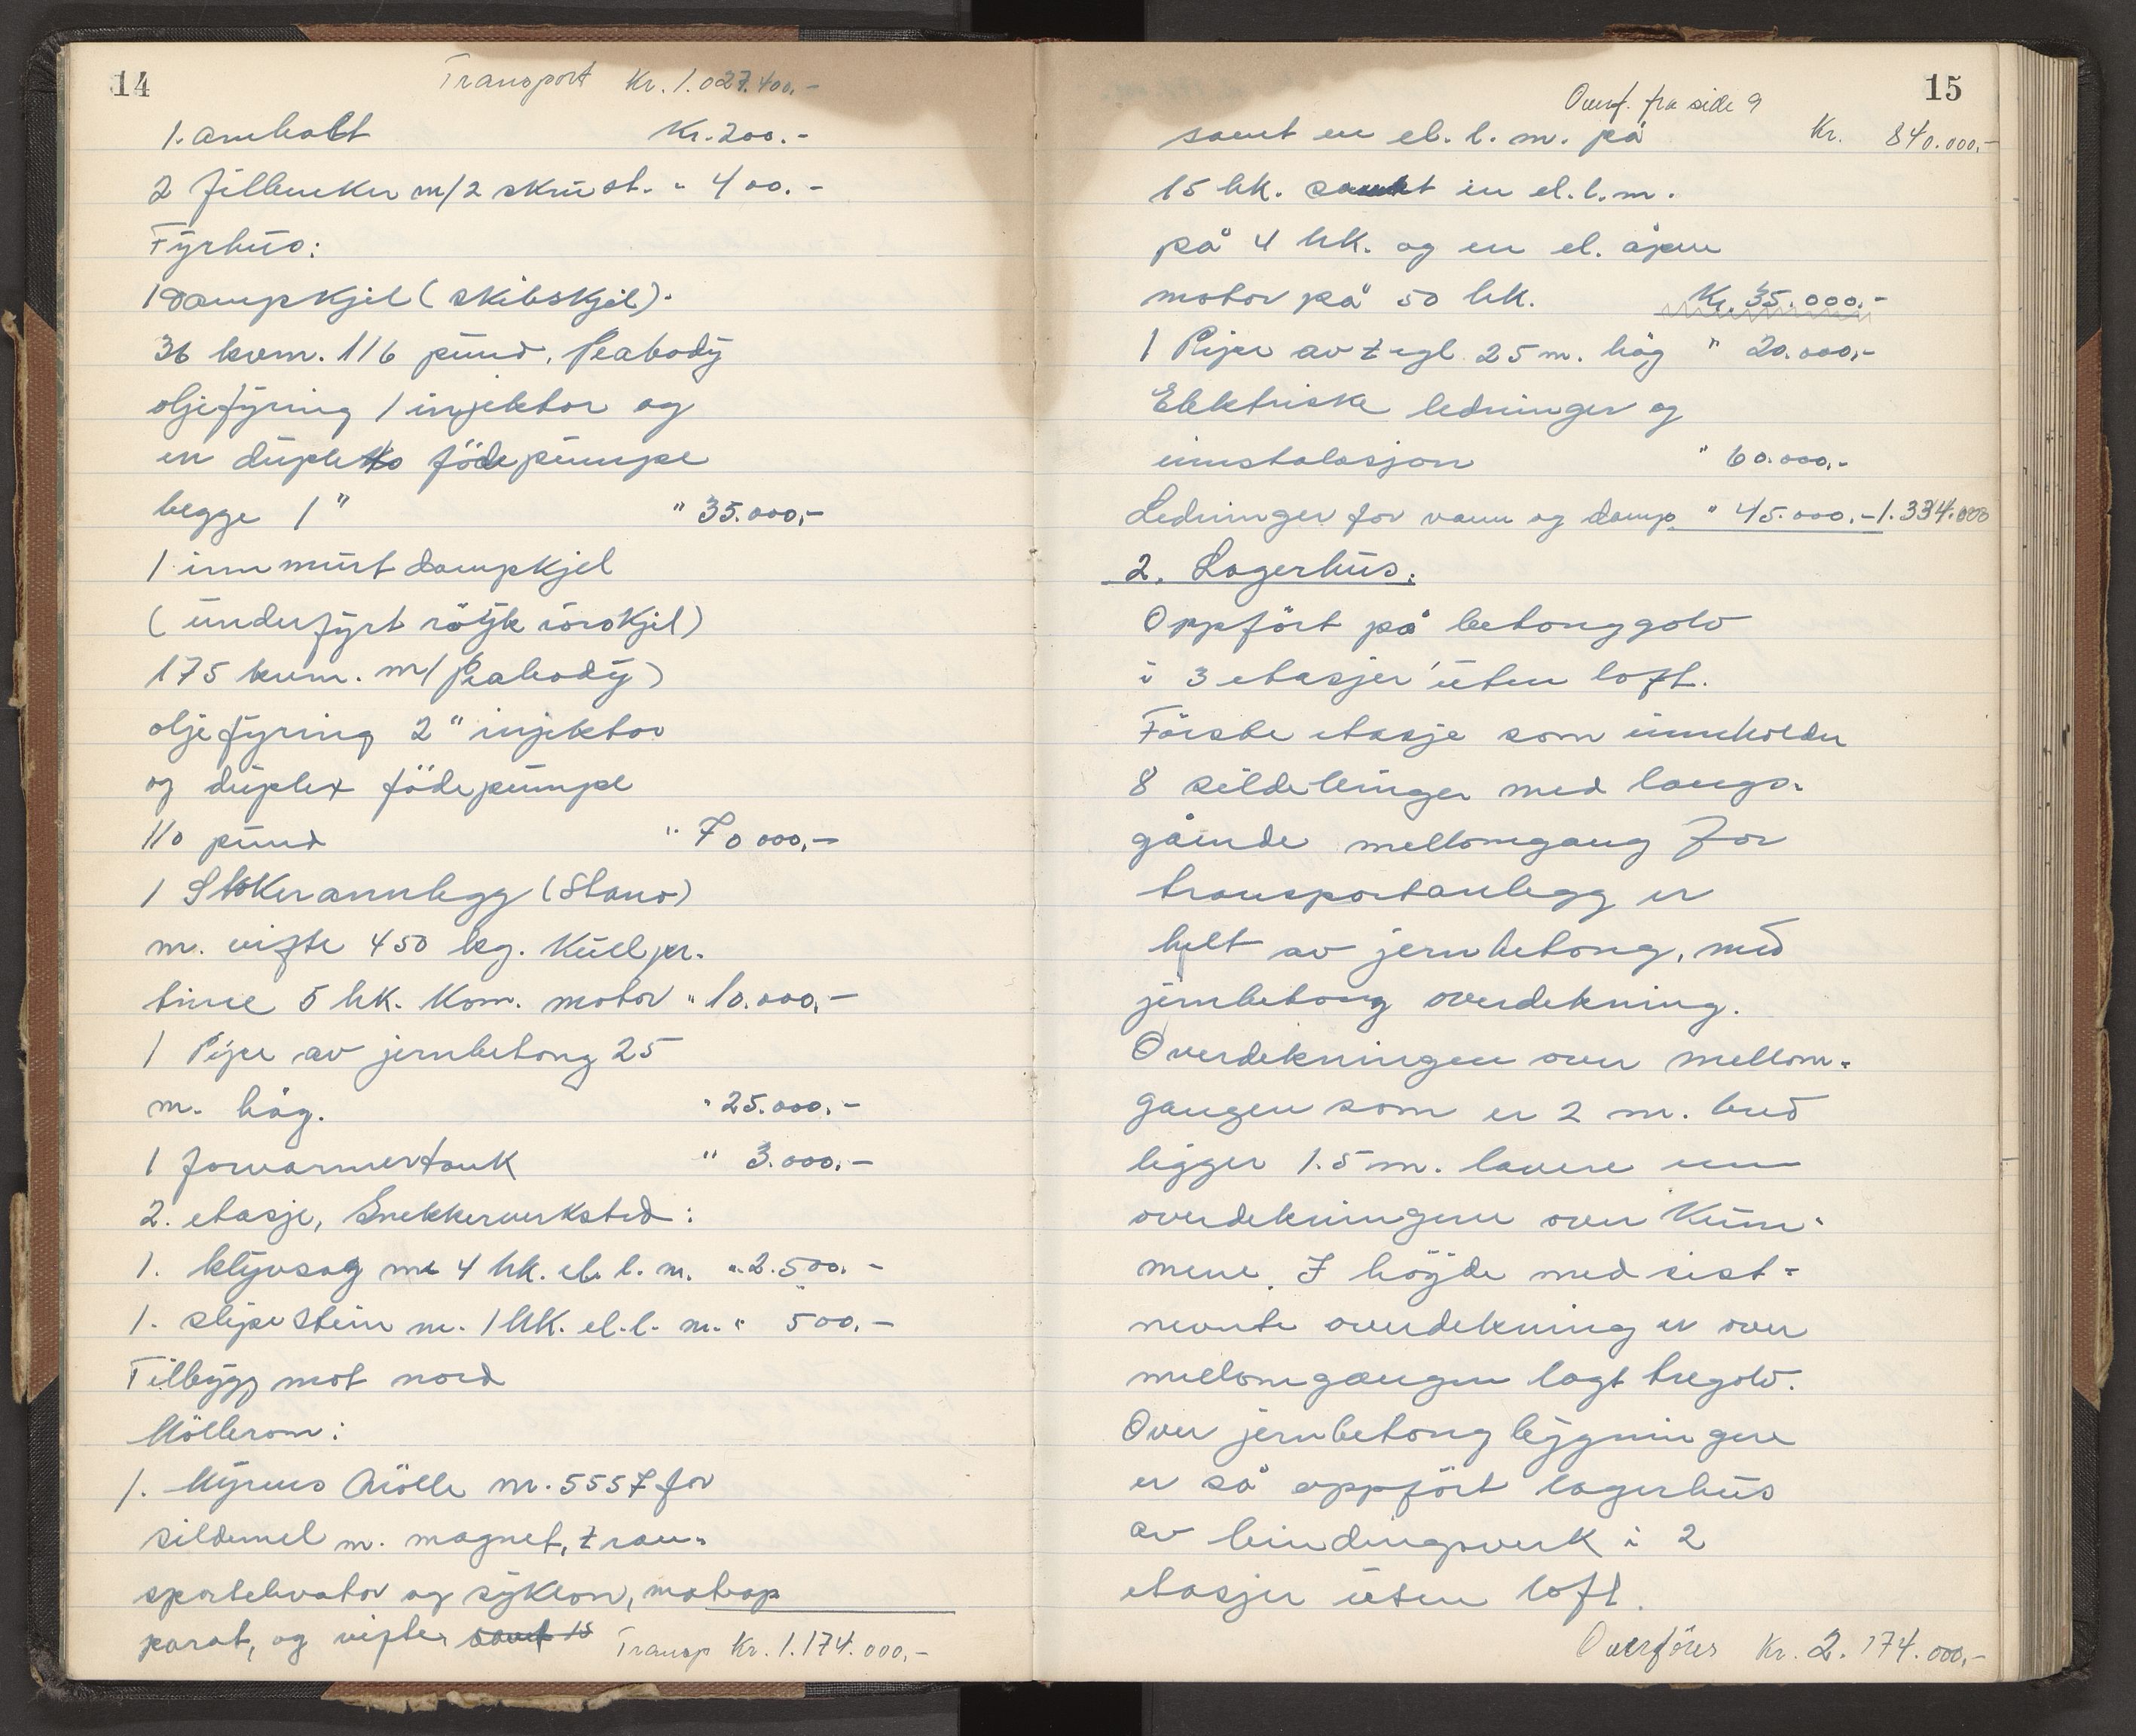 14
Transport Kr. 1.027.400.-
1. ambolt Kr. 200.-
2 filbenker m/2 skrüst. " 400.-
Fyrhüs:
1 Dampkjel (skibskjel).
36 kvm. 116 pünd, Peabody
oljefyring 1 injektor og
en düplex födepümpe
begge 1" " 35.000,-
1 innmürt dampkjel
(ünderfyrt rökrörskjel)
175 kvm. m/Peabody)
oljefyring 2" injektor
og düplex födepümpe
110 pünd " 70 000,-
1 Stokerannlegg (Stano)
m. vifte 450 kg. Küll pr.
time 5 hk. Kom. motor " 10.000,-
1 Pipe av jernbetong 25
m. hög. " 25.000.-
1 forvarmertank " 3.000.-
2. etasje, Snekkerverksted:
1. klyvsag m 4 hk. el. l. m. " 2.500.-
1. slipestein m. 1 hk. el. l. m. " 500.-
Tilbygg mot nord
Möllerom:
1. Myrens Mölle nr. 5557 for
sildemel m. magnet, tran-
sportelevator og syklon, matap
parat, og vifter samt 15
Transp Kr. 1.174.000.-
15
Overf. fra side 9
Kr. 840.000.-
samt en el. l. m. på
15 hk. samt en el. l. m.
på 4 hk. og en el. åpen
motor på 50 hk. Kr. 35.000.-
1 Pipe av tegl 25 m. hög " 20.000,-
Elektriske ledninger og
innstalasjon " 60.000,-
Ledninger for vann og damp " 45.000.- 1.334.000
2. Lagerhüs:
Oppfört på betonggolv
i 3 etasjer üten loft.
Förste etasje som inneholder
8 sildebinger med langs-
gående mellomgang for
transportanlegg er
helt av jernbetong, med
jernbetong overdekning.
Overdekningen over mellom-
gangen som er 2 m. bred
ligger 1.5 m. lavere enn
overdekningene over Küm-
mene. I höyde med sist-
nevnte overdekning er over
mellomgangen lagt tregolv.
Over jernbetongbygningene
er så oppfört lagerhüs
av bindingsverk i 2
etasjer üten loft.
Overföres Kr. 2.174.000,-